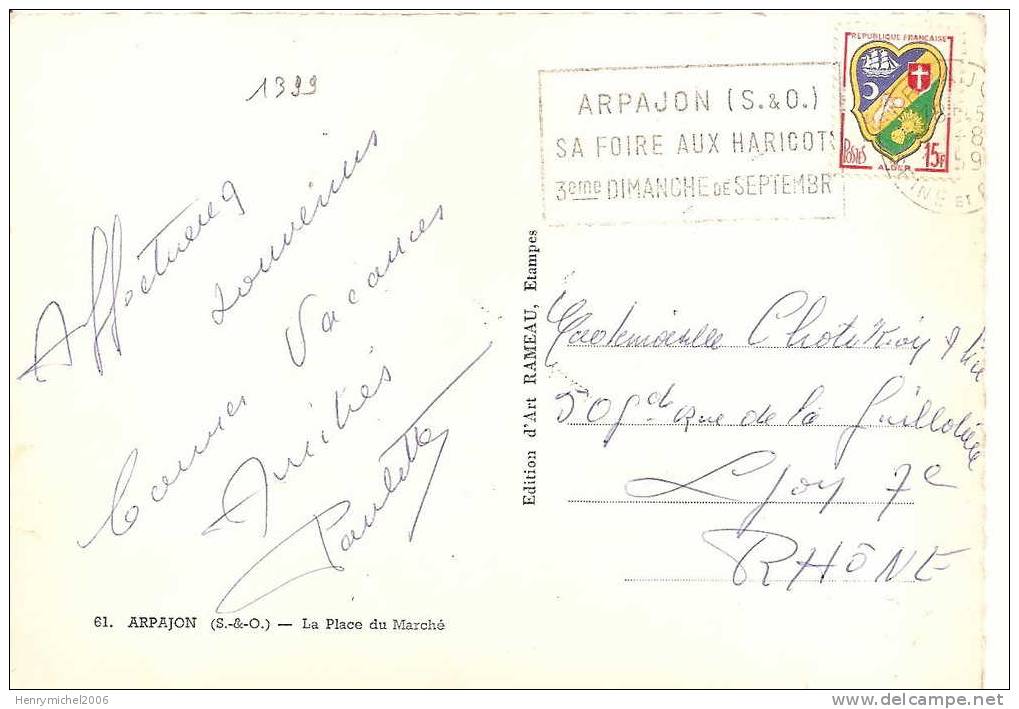 1399
Affectueux
souvenirs
Vacances
Bonnes
Amitiés
Paulette
61. ARPAJON (S.-&-O.) — La Place du Marché
Edition d'Art RAMEAU, Etampes
ARPAJON (S.&O.)
SA FOIRE AUX HARICOTS
3eme DIMANCHE DE SEPTEMBR
REPUBLIQUE FRANÇAISE
POSTES
ALGER
15F
Mademoiselle
50 gde Rue de la Guillotière
Lyon 7e
RHÔNE
Henrymichel2006
www.delcampe.net